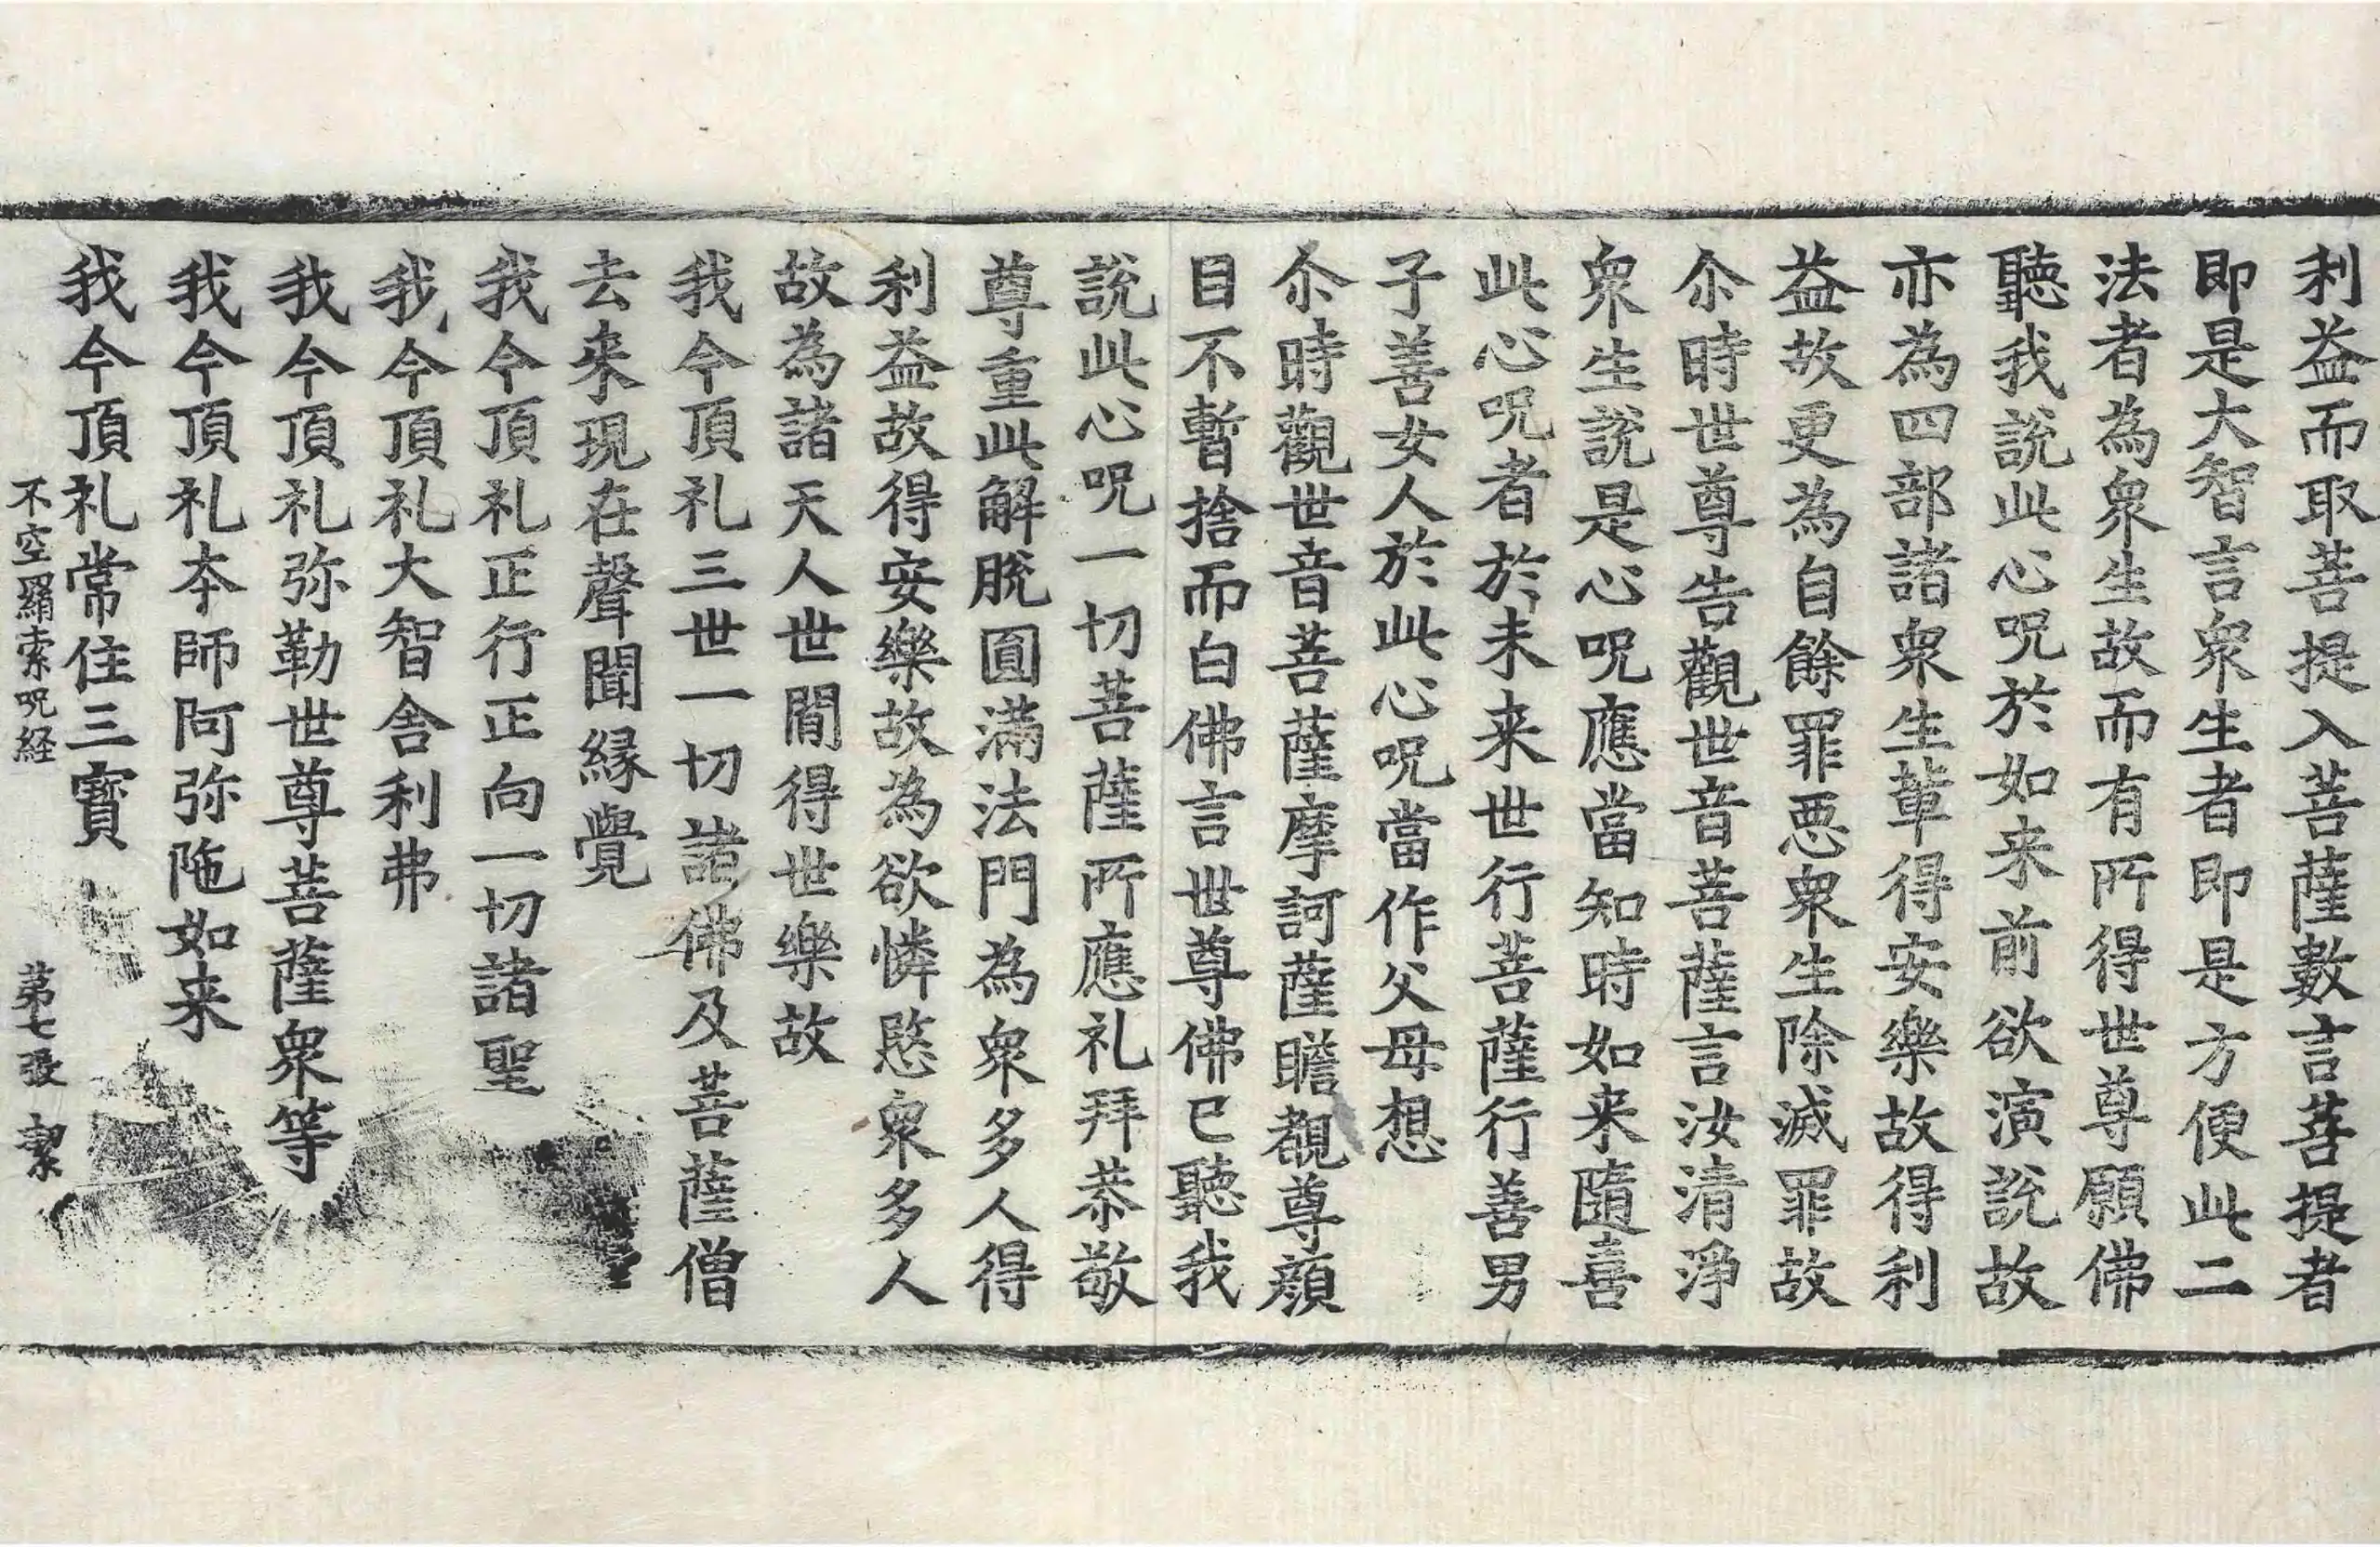 利益而取菩提入菩薩數言菩提者
即是大智言衆生者即是方便此二
法者為衆生故而有所得世尊願佛
聽我說此心呪於如来前欲演說故
亦為四部諸衆生輩得安樂故得利
益故更為自餘罪惡衆生除滅罪故
尒時世尊告觀世音菩薩言汝清淨
衆生說是心呪應當知時如来隨喜
此心呪者於未来世行菩薩行善男
子善女人於此心呪當作父母想
尒時觀世音菩薩摩訶薩瞻覩尊顔
目不暫捨而白佛言世尊佛已聽我
說此心呪一切菩薩所應礼拜恭敬
尊重此解脫圓滿法門為衆多人得
利益故得安樂故為欲憐愍衆多人
故為諸天人世間得世樂故
我今頂礼三世一切諸佛及菩薩僧
去来現在聲聞緣覺
我今頂礼正行正向一切諸聖
我今頂礼大智舍利弗
我今頂礼弥勒世尊菩薩衆等
我今頂礼本師阿弥陁如来
我今頂礼常住三寶
不空羂索呪経 苐七張 潔